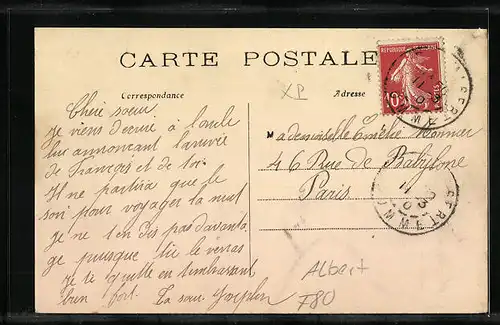 CARTE POSTALE
Correspondance
Adresse
REPUBLIQUE FRANÇAISE
10
XP
Chère sœur
je viens d'écrire à l'oncle
lui annoncant l'arrivée
de François et de toi.
Il ne partira que le
soir pour voyager la nuit
je ne t'en dis pas davantage
puisque tu le verras
je te quitte en t'embrassant
bien fort. Ta sœur
Mademoiselle Emélie
46 Rue de Babylone
Paris
ALBERT
Albert
F80